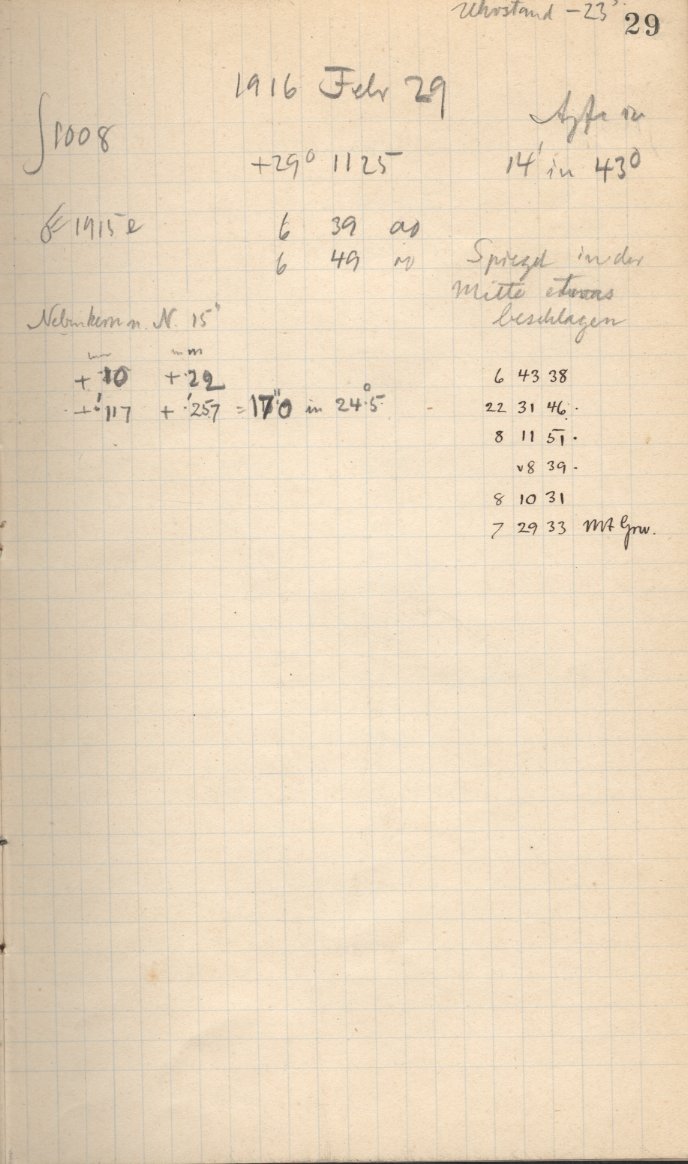 Uhrstand −23ˢ 29
1916 Febr 29
1008
Agfa in
+29° 1125 14' in 43°
1915 e 6 39 ao
6 49 Spiegel in der
Mitte etwas
beschlagen
Nebenkern n. N. 15"
mm mm
+ 10 + 22 6 43 38
+ '117 + '257 = 17"0 in 24°5 22 31 46.
8 11 51.
v8 39.
8 10 31
7 29 33 Mt Grw.